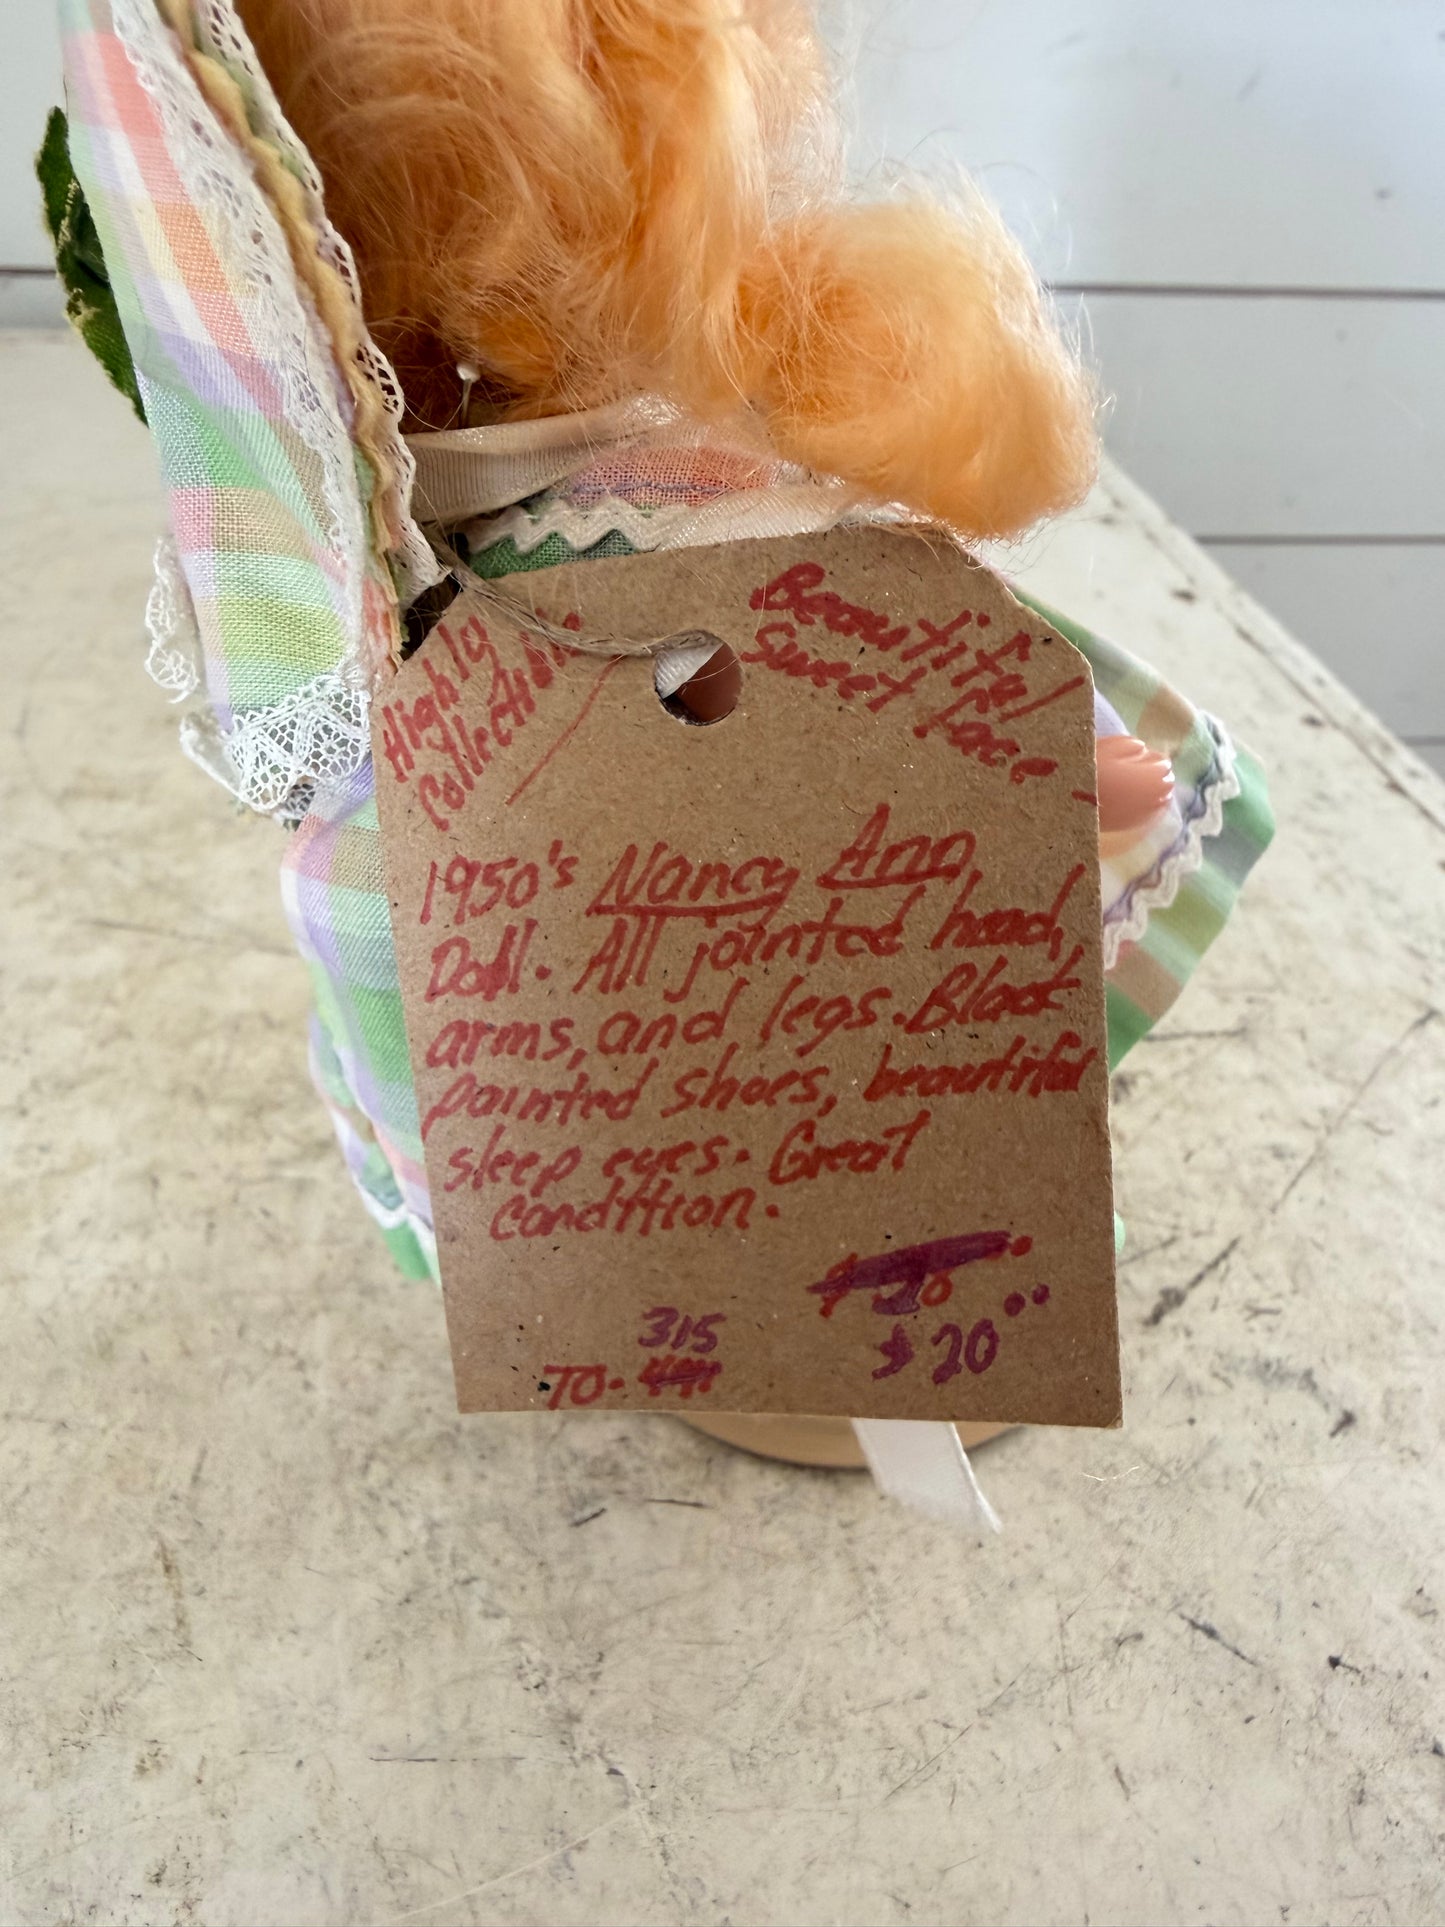 Highly
Collectible
Beautiful
Sweet face
1950's Nancy Ann
Doll. All jointed head,
arms, and legs. Black
painted shoes, beautiful
sleep eyes. Great
condition.
$20
315
TO-